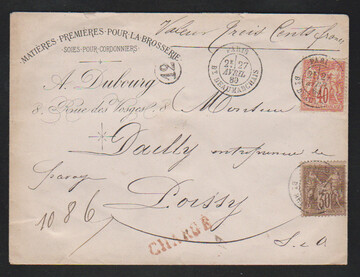 Valeur Trois Cents francs
MATIÈRES-PREMIÈRES-POUR-LA-BROSSERIE
SOIES-POUR-CORDONNIERS
12
PARIS
27
AVRIL
89
BD BEAUMARCHAIS
40
A. Dubourg
8, Rue des Vosges, 8
Monsieur
Dailly entrepreneur de
Poissy
1086
30
CHARGÉ
S. et O